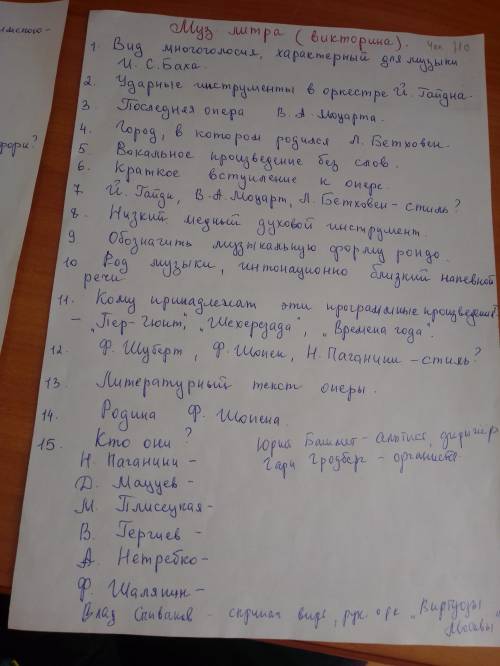 Муз литра (викторина).
1. Вид многоголосия, характерный для музыки
И. С. Баха.
2. Ударные инструменты в оркестре Й. Гайдна.
3. Последняя опера В. А. Моцарта.
4. Город, в котором родился Л. Бетховен.
5. Вокальное произведение без слов.
6. Краткое вступление к опере.
7. Й. Гайдн, В. А. Моцарт, Л. Бетховен - стиль?
8. Низкий медный духовой инструмент.
9. Обозначить музыкальную форму рондо.
10. Род музыки, интонационно близкий напевной
речи
11. Кому принадлежат эти программные произведения?
- "Пер-Гюнт", "Шехерезада", "Времена года".
12. Ф. Шуберт, Ф. Шопен, Н. Паганини - стиль?
13. Литературный текст оперы.
14. Родина Ф. Шопена.
15. Кто они? Юрий Башмет - альтист, дирижер
Н. Паганини - Гари Гродберг - органист
Д. Мацуев -
М. Плисецкая -
В. Гергиев -
А. Нетребко -
Ф. Шаляпин -
Влад Спиваков - скрипач рук. орк "Виртуозы
Москвы"